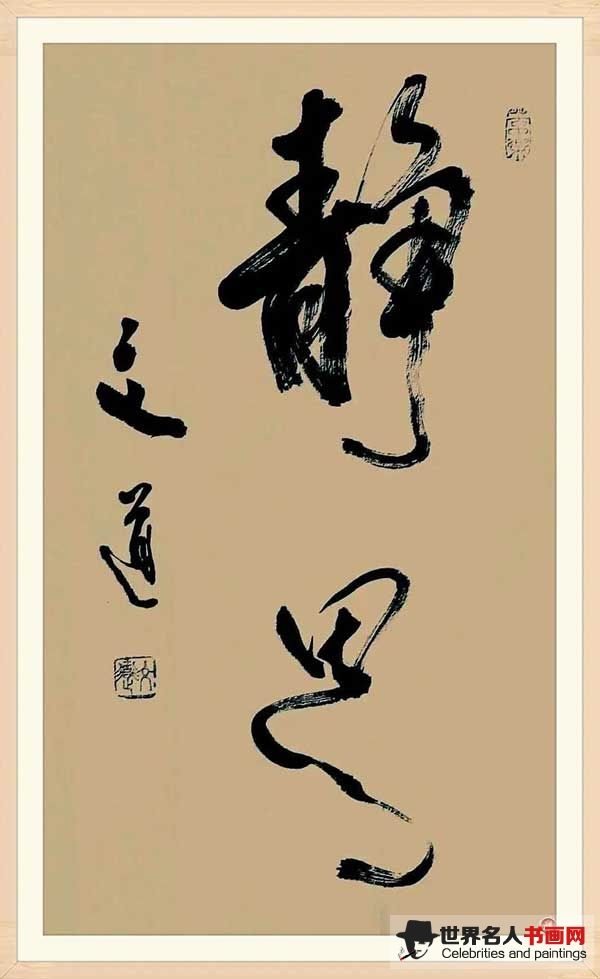 静思
文道
世界名人书画网
Celebrities and paintings